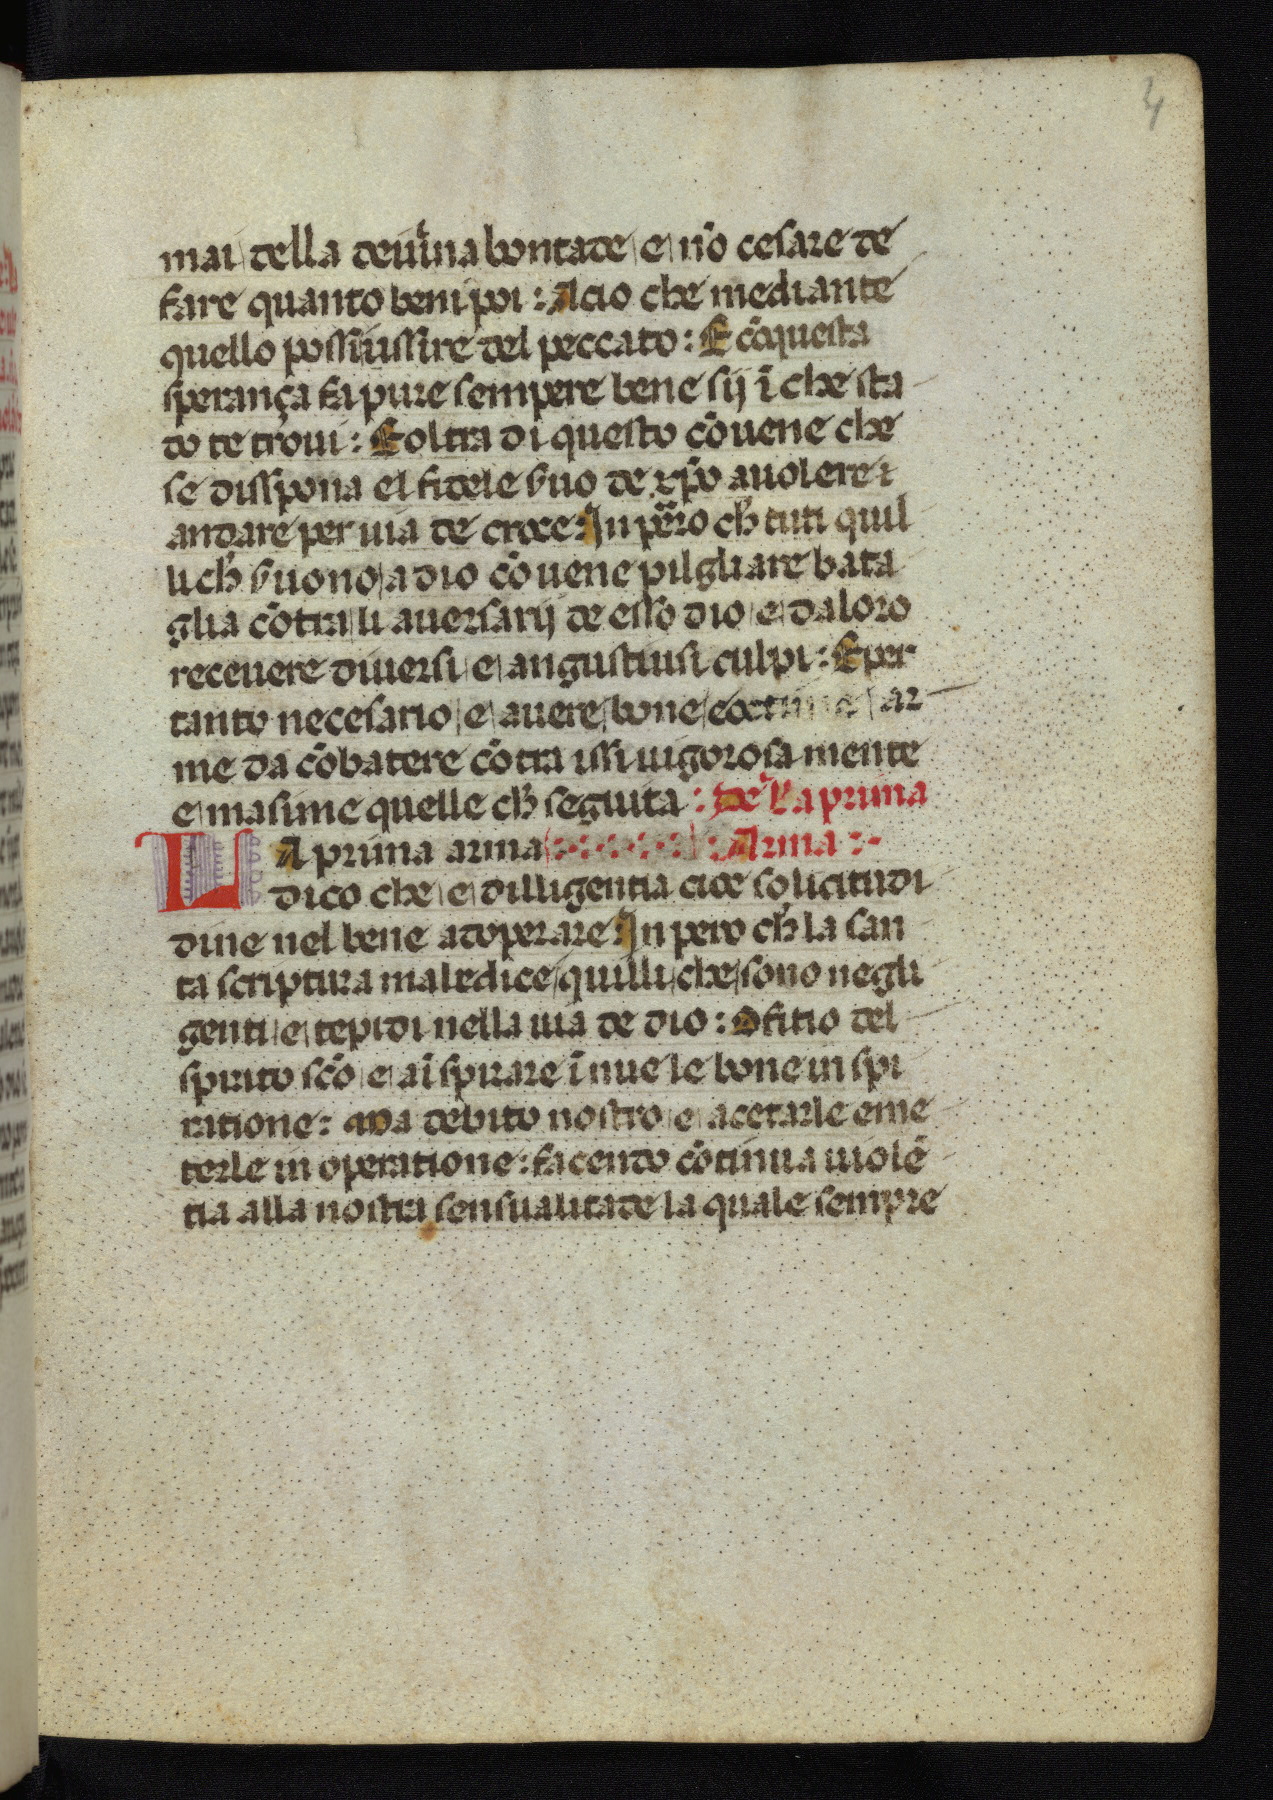 4
mai della deuina bontade e nõ cesare de
fare quanto beni poi : Acio che mediante
quello possi ussire del peccato : E cõquesta
sperança fa pure sempere bene sij ĩ che sta
do te troui : E oltra di questo cõuene che
se disspona el fidele ſuo de xp̃o a uolere
andare per uia de croce : In pero ch̃ tuti quil
li ch̃ ſuono a dio cõuene pilgliare bata
glia cõtra li auersarij de esso dio e da loro
receuere diuersi e angustiusi culpi : E per
tanto necesario e auere bone ar
me da cõbatere cõtra issi uigorosa mente
e masime quelle ch̃ seguita : De La prima
LA prima arma : Arma :
dico che e dilligentia cioe solicitudi
dine nel bene adoperare : In pero ch̃ la san
ta scriptura maledice quilli che sono negli
genti e tepidi nella uia de dio : Ofitio del
spirito sc̃o e aĩspirare ĩ nue le bone in spi
ratione : Ma debito nostro e acetarle e me
terle in operatione : facendo cõtinua uiolẽ
tia alla nostra sensualitade la quale sempre